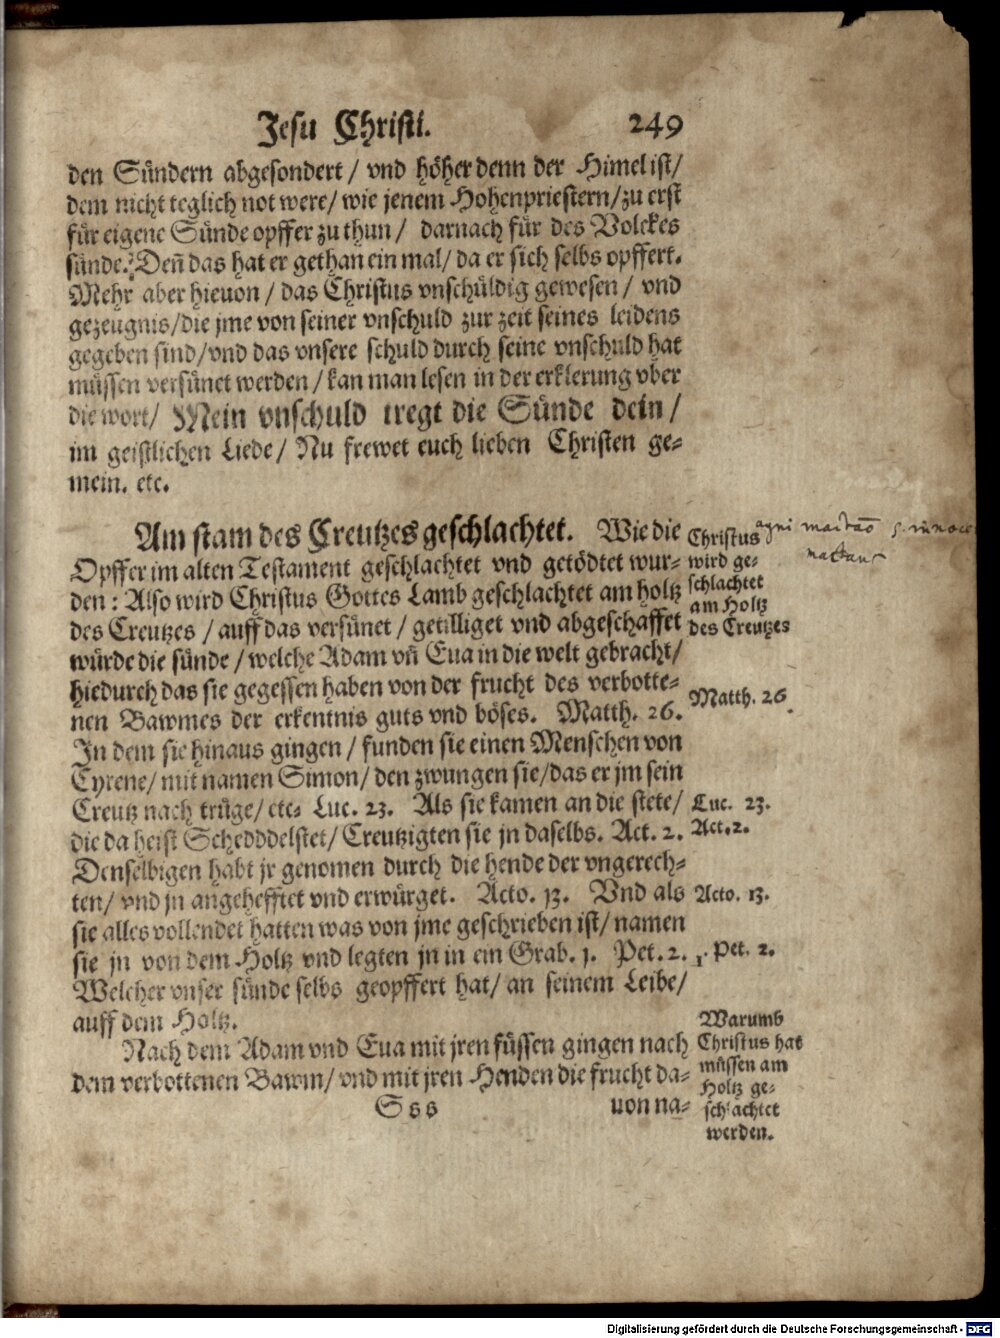 Jesu Christi. 249
den Sündern abgesondert / vnd höher denn der Himel ist/
dem nicht teglich not were/ wie jenem Hohenpriestern/ zu erst
für eigene Sünde opffer zu thun / darnach für des Volckes
sünde. Deñ das hat er gethan ein mal/ da er sich selbs opffert.
Mehr aber hieuon / das Christus vnschüldig gewesen / vnd
gezeugnis/die jme von seiner vnschuld zur zeit seines leidens
gegeben sind/vnd das vnsere schuld durch seine vnschuld hat
müssen versünet werden / kan man lesen in der erklerung vber
die wort/ Mein vnschuld tregt die Sünde dein /
im geistlichen Liede/ Nu frewet euch lieben Christen ge-
mein. etc.
Am stam des Creutzes geschlachtet. Wie die
Opffer im alten Testament geschlachtet vnd getödtet wur-
den : Also wird Christus Gottes Lamb geschlachtet am holtz
des Creutzes / auff das versünet / getilliget vnd abgeschaffet
würde die sünde / welche Adam vñ Eua in die welt gebracht/
hiedurch das sie gegessen haben von der frucht des verbotte-
nen Bawmes der erkentnis guts vnd böses. Matth. 26.
In dem sie hinaus gingen / funden sie einen Menschen von
Cyrene/ mit namen Simon/ den zwungen sie/das er jm sein
Creutz nach trüge/ etc. Luc. 23. Als sie kamen an die stete/
die da heist Schedddelstet/ Creutzigten sie jn daselbs. Act. 2.
Denselbigen habt jr genomen durch die hende der vngerech-
ten/ vnd jn angehefftet vnd erwürget. Acto. 13. Vnd als
sie alles vollendet hatten was von jme geschrieben ist/ namen
sie jn von dem Holtz vnd legten jn in ein Grab. 1. Pet. 2.
Welcher vnser sünde selbs geopffert hat/ an seinem Leibe/
auff dem Holtz.
Nach dem Adam vnd Eua mit jren füssen gingen nach
dem verbottenen Bawm/ vnd mit jren Henden die frucht da-
Sss uon na-
Christus
wird ge-
schlachtet
am Holtz
des Creutzes
agni
Matth. 26.
Luc. 23.
Act. 2.
Acto. 13.
1. Pet. 2.
Warumb
Christus hat
müssen am
Holtz ge-
schlachtet
werden.
Digitalisierung gefördert durch die Deutsche Forschungsgemeinschaft - DFG